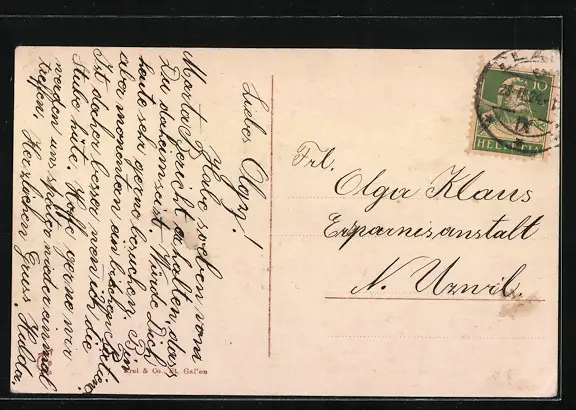 Liebes Olgy!
Habe soeben vom
Marta Bericht erhalten, dass
Du daheim seist. Würde Dich
heute sehr gerne besuchen. Bin
aber momentan ein
Ist daher besser wen ich die
Stube hüte. Hoffe gerne wir
werden uns später wieder einmal
treffen. Herzlichen Gruss Hulda.
Frl.
Olga Klaus
Ersparnisanstalt
N. Uzwil.
10
HELVETIA
& Co., St. Gallen